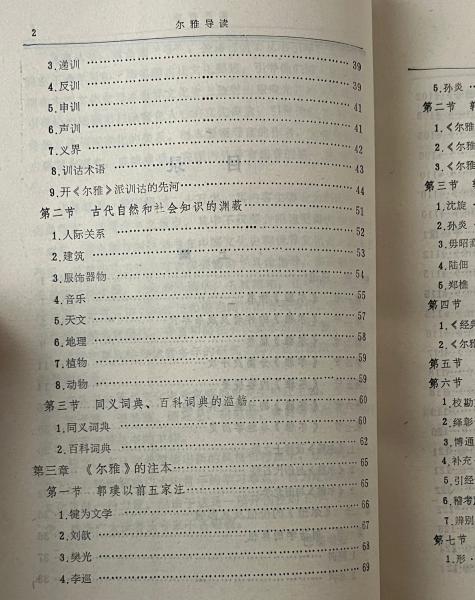 2 尔雅导读
3.递训 39
4.反训 40
5.申训 41
6.声训 41
7.义界 42
8.训诂术语 43
9.开《尔雅》派训诂的先河 44
第二节 古代自然和社会知识的渊薮 51
1.人际关系 52
2.建筑 53
3.服饰器物 54
4.音乐 55
5.天文 57
6.地理 58
7.植物 59
8.动物 59
第三节 同义词典、百科词典的滥觞 60
1.同义词典 60
2.百科词典 62
第三章 《尔雅》的注本 65
第一节 郭璞以前五家注 65
1.犍为文学 66
2.刘歆 67
3.樊光 68
4.李巡 69
5.孙炎
第二节
1.《尔雅
2.《尔雅
3.《尔雅
第三节
1.沈旋
2.孙炎
3.毋昭
4.陆佃
5.郑樵
第四节
1.《经典
2.《尔雅
第五节
第六节
1.校勘
2.绎彰
3.博通
4.补充
5.引经
6.稽考
7.辨别
第七节
1.形